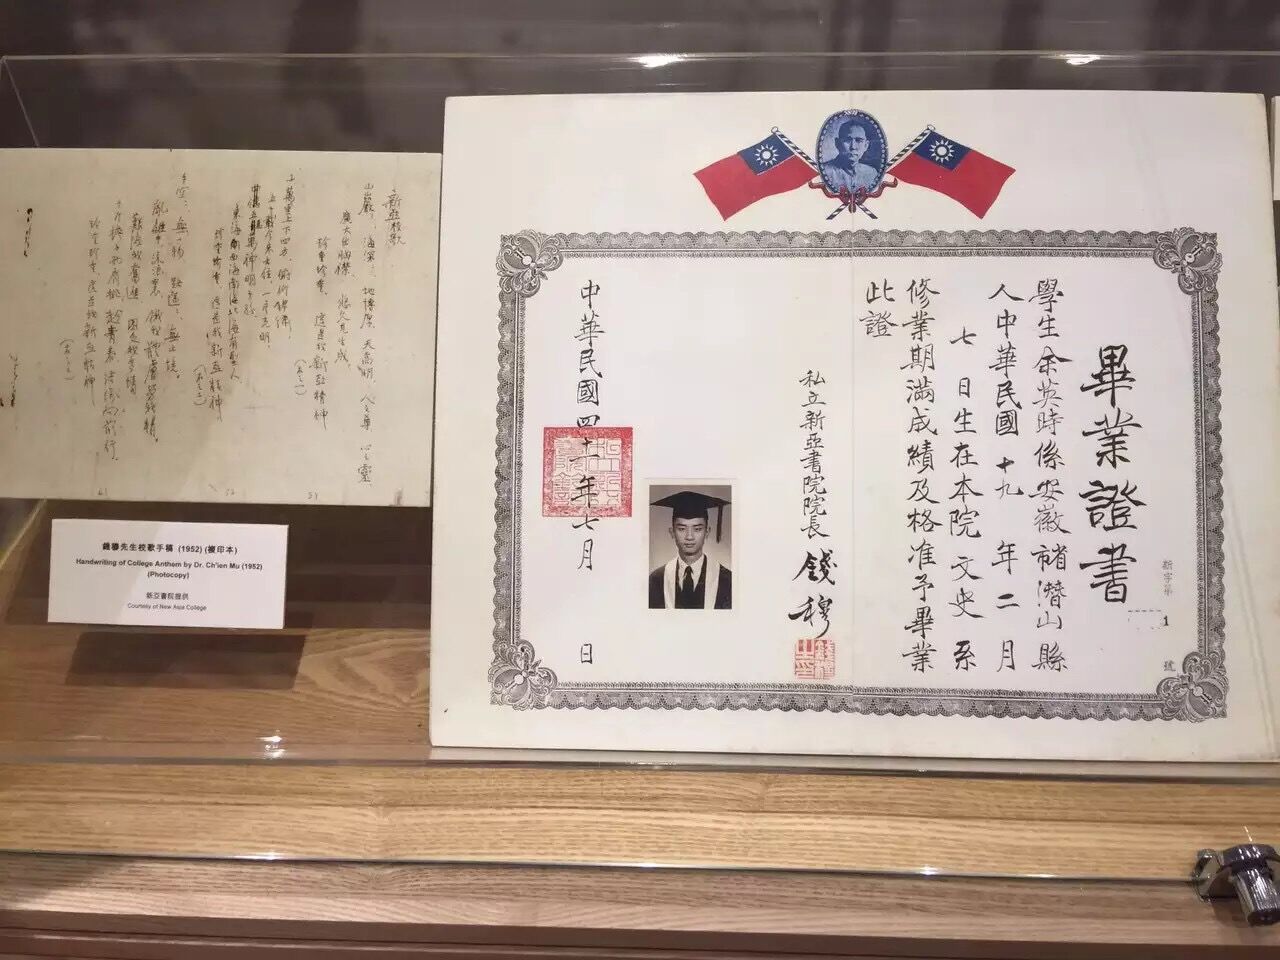 畢業證書
學生余英時係安徽省潛山縣
人中華民國十九年二月
七日生在本院文史系
修業期滿成績及格准予畢業
此證
私立新亞書院院長 錢穆
中華民國四十一年七月 日
新字第 1 號
新亞校歌
山巖巖 海深深 地博厚 天高明 人之尊 心之靈
廣大出胸襟 悠久見生成
珍重珍重 這是我新亞精神
十萬里上下四方 俯仰錦繡
五千載今來古往 一片光明
東海西海南海北海有聖人
珍重珍重 這是我新亞精神
手空空 無一物 路遙遙 無止境
亂離中 流浪裏 餓我體膚勞我精
艱險我奮進 困乏我多情
千斤擔子兩肩挑 趁青春 結隊向前行
珍重珍重 這是我新亞精神
錢穆先生校歌手稿 (1952) (複印本)
Handwriting of College Anthem by Dr. Ch'ien Mu (1952)
(Photocopy)
新亞書院提供
Courtesy of New Asia College